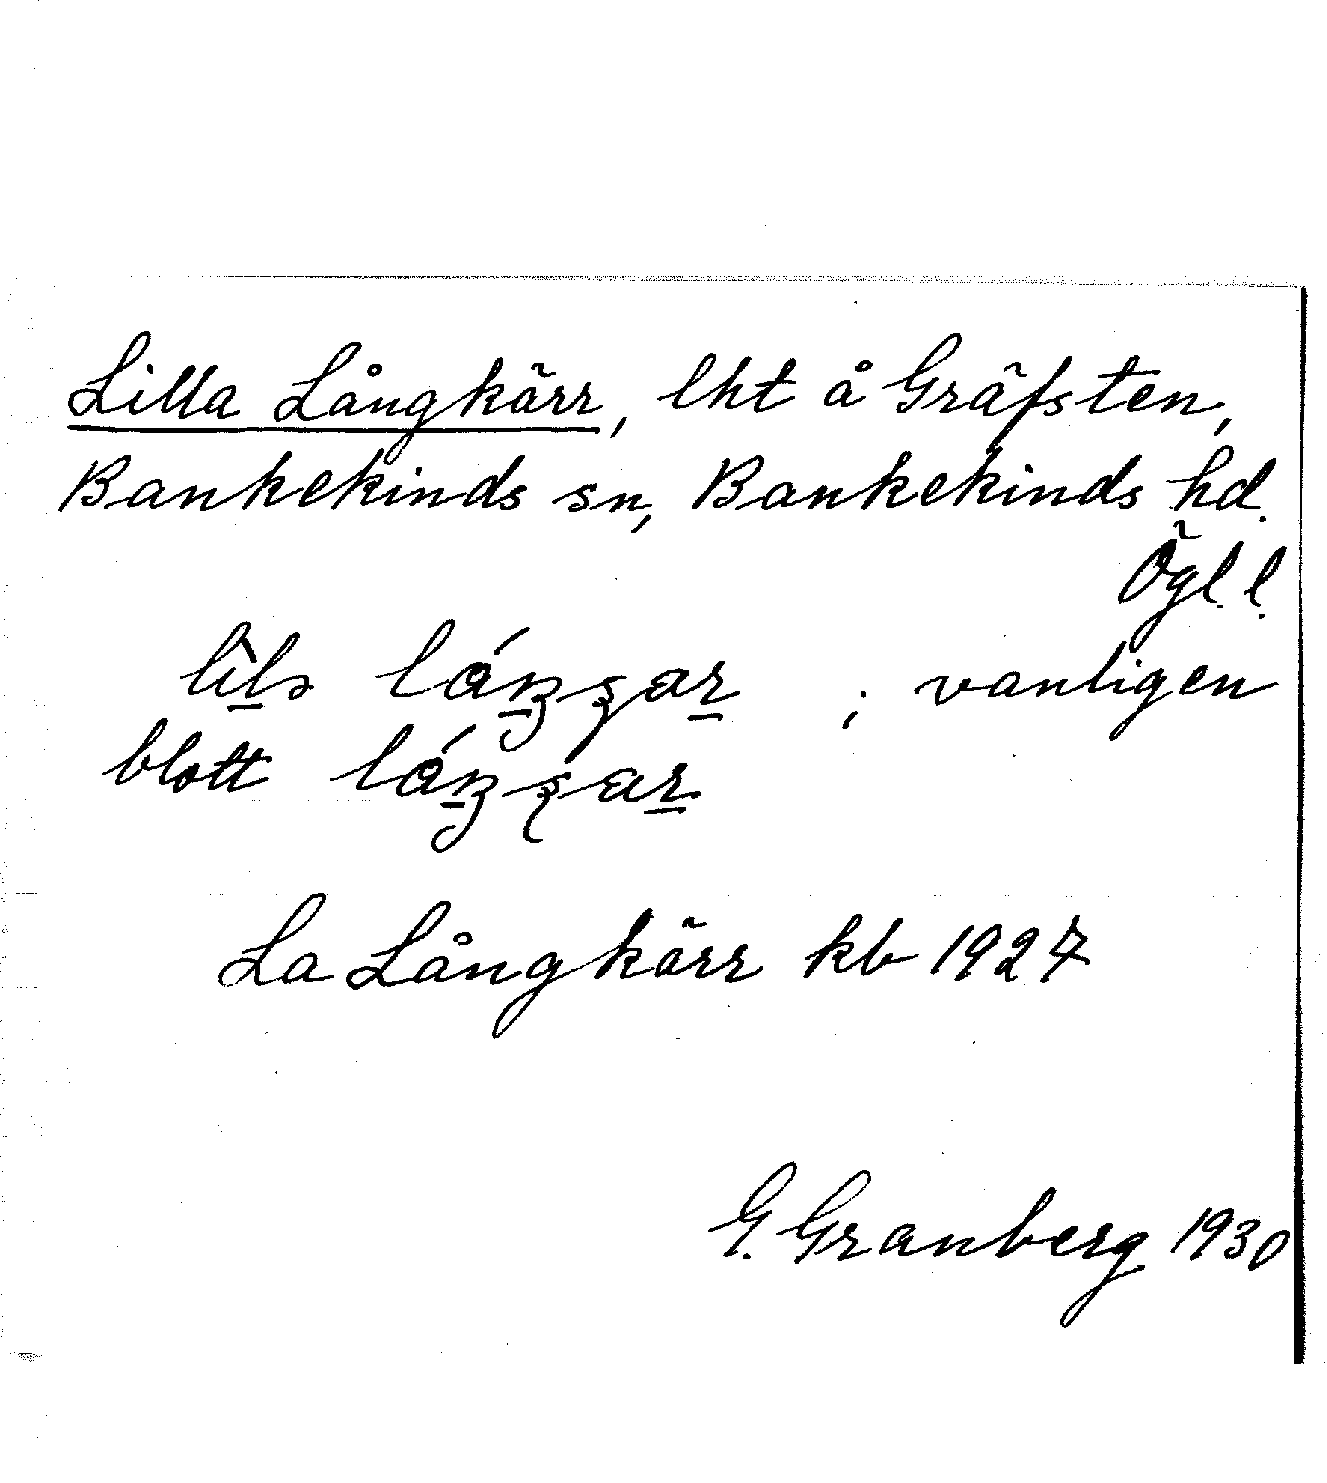 Lilla Långkärr, lht å Gräfsten,
Bankekinds sn, Bankekinds hd.
Ögl. l.
; vanligen
blott
La Långkärr kb 1927
G. Granberg 1930